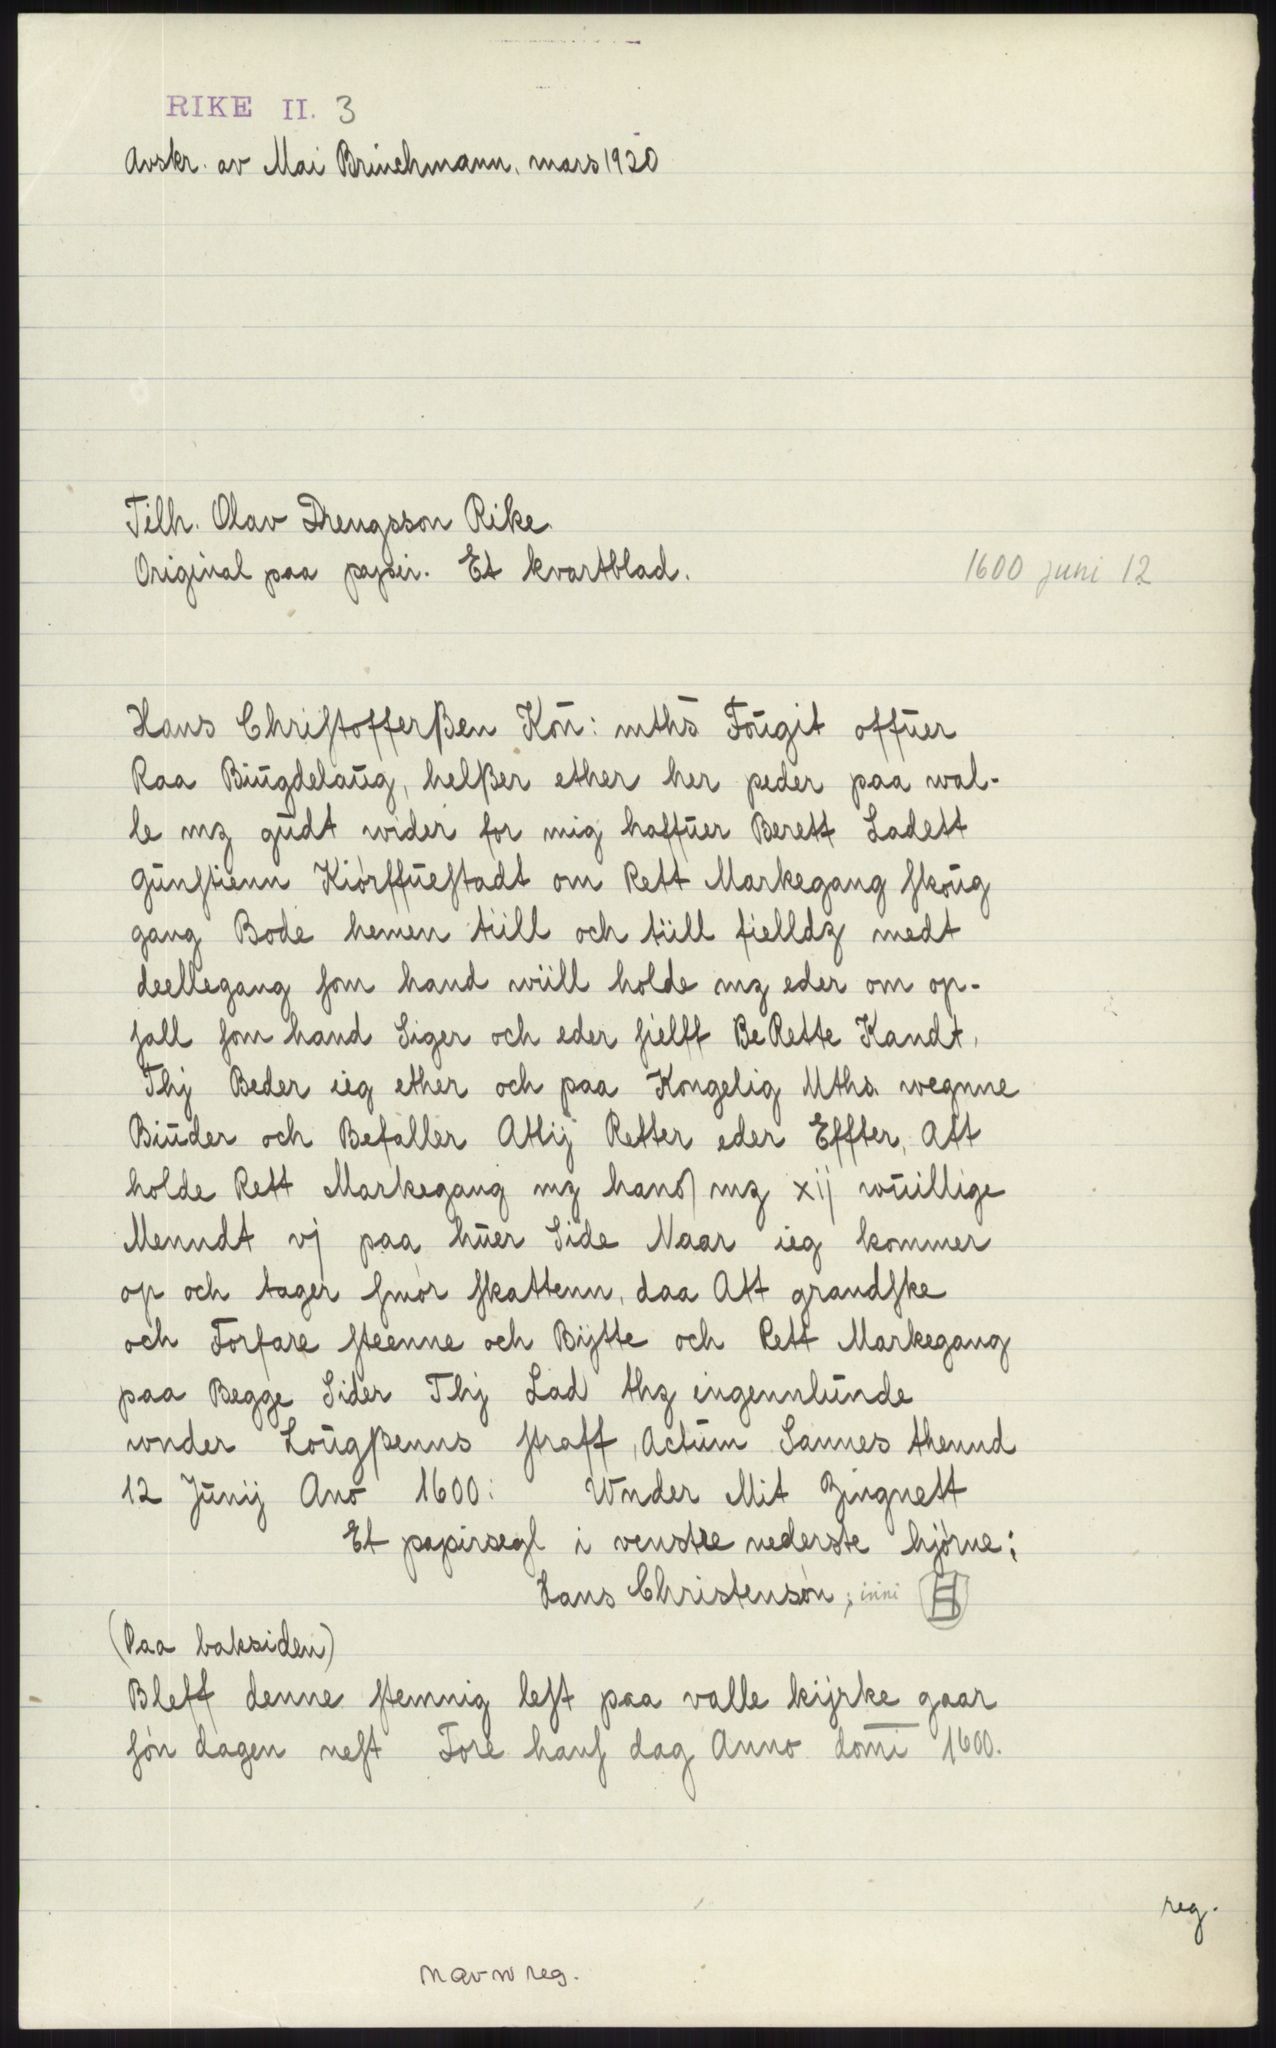 RIKE II. 3
Avskr. av Mai Brinchmann, mars 1920
Tilh. Olav Drengsson Rike.
Original paa papir. Et kvartblad.
1600 juni 12
Hans Chriſtofferßen Kon̄: mths̄ Foŭgit offŭer
Raa Biŭgdelaŭg, helßer ether her peder paa wal-
le mz gŭdt wider for mig haffŭer Berett Ladett
gŭnſtienn Kiørffŭeſtadt om Rett Markegang ſkoŭg
gang Bode hemen tiill och tiill fielldz medt
deellegang ſom hand wiill holde mz eder om op-
ſall ſom hand Siger och eder ſielff BeRette Kandt,
Thj Beder ieg ether och paa Kongelig Mths. wegnne
Biŭder och Befaller Attij Retter eder Effter, Att
holde Rett Markegang mz hand mz xij wŭillige
Menndt vj paa hŭer Side Naar ieg kommer
op och tager ſmør ſkattenn, daa Att grandſke
och Forfare ſteenne och Bÿtte och Rett Markegang
paa Begge Sider Thj Lad thz ingennlŭnde
wnder Loŭgßenns ſtraff, Actŭm Sannes thennd
12 Jŭnij Ano 1600: Wnder Mit Zingnett
Et papirsegl i venstre nederste hjørne:
Hans Christensøn;
(Paa baksiden)
Bleff denne ſtemnig leſt paa valle kijrke gaar
ſøn dagen neſt Fore hanſ dag Anno domī 1600.
reg.
navn reg.